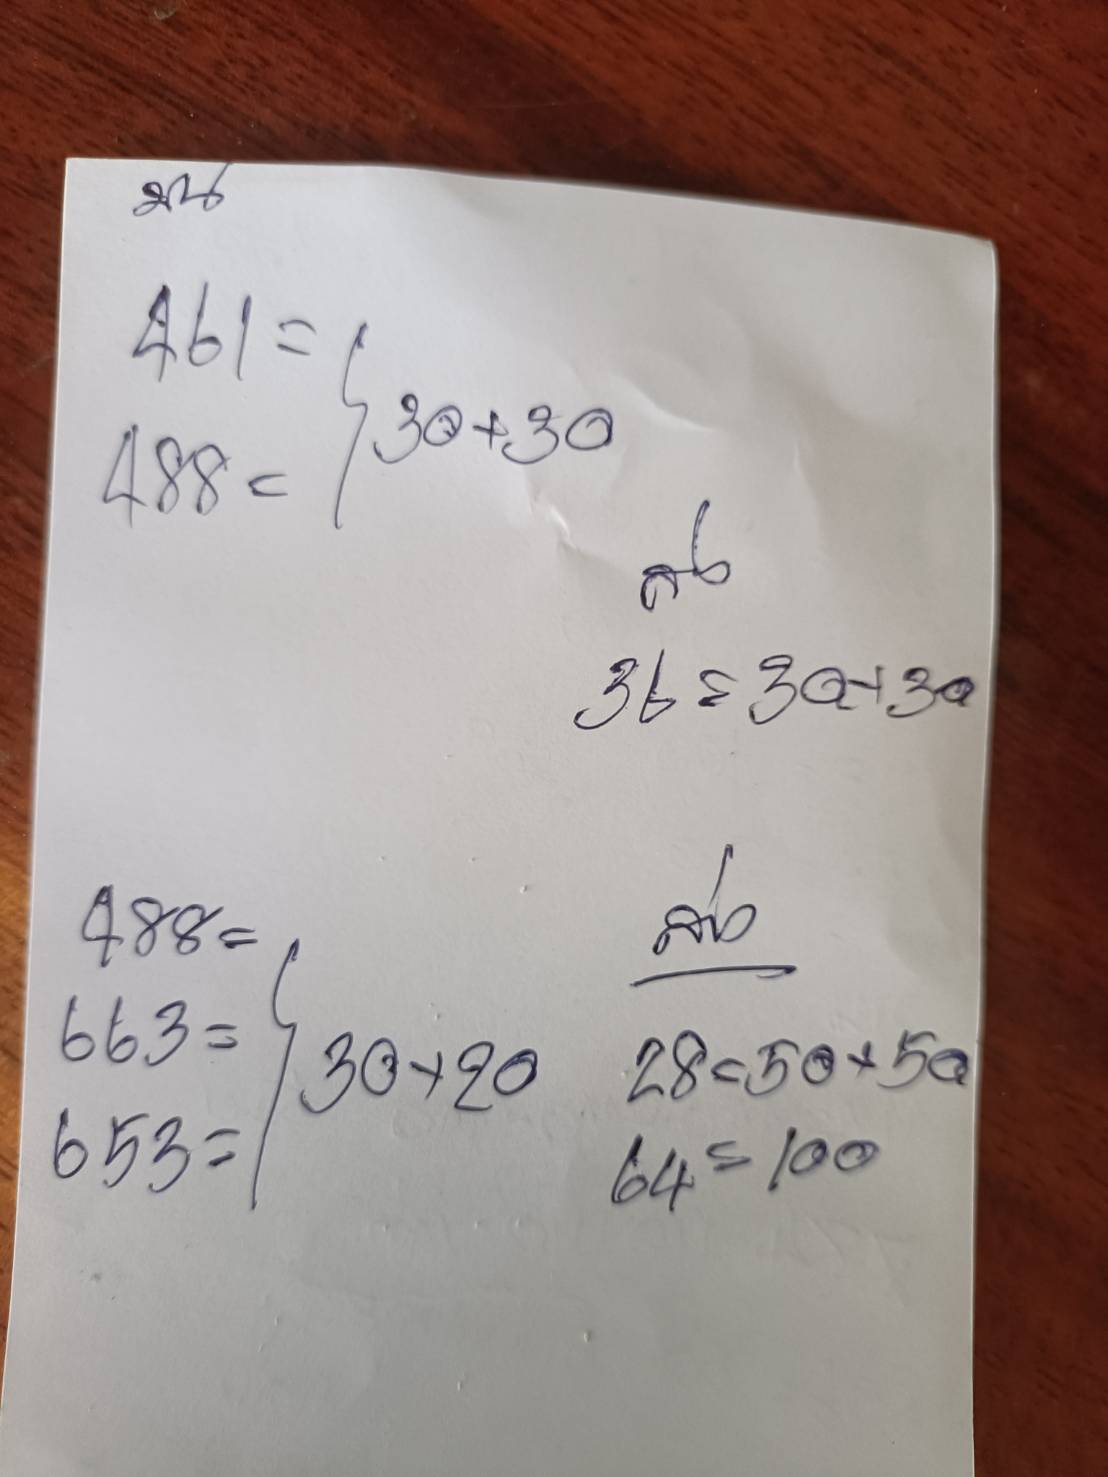 บน
461 =
488 =
30+30
ล่าง
36 = 30+30
488 =
663 =
653 =
30+20
ล่าง
28 = 50+50
64 = 100